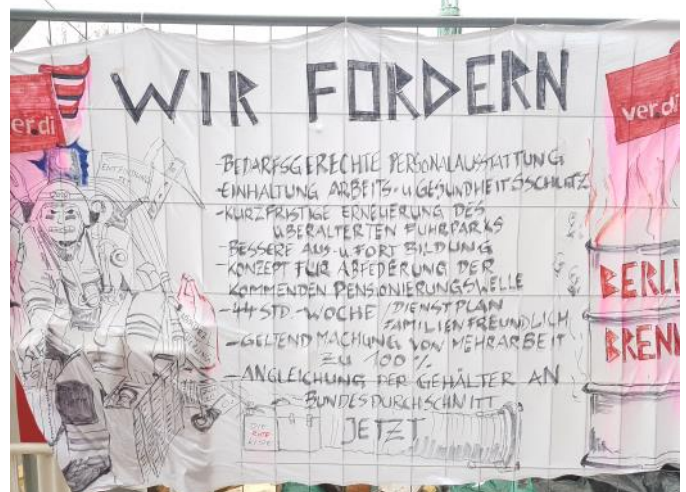 WIR FORDERN
verdi
-BEDARFSGERECHTE PERSONALAUSSTATTUNG
-EINHALTUNG ARBEITS-U GESUNDHEITSSCHUTZ
-KURZFRISTIGE ERNEUERUNG DES
ÜBERALTERTEN FUHRPARKS
-BESSERE AUS-U.FORTBILDUNG
-KONZEPT FÜR ABFEDERUNG DER
KOMMENDEN PENSIONIERUNGSWELLE
-44 STD.-WOCHE /DIENSTPLAN
FAMILIENFREUNDLICH
-GELTENDMACHUNG VON MEHRARBEIT
ZU 100%
-ANGLEICHUNG DER GEHÄLTER AN
BUNDESDURCHSCHNITT
JETZT
erdi
BERLI
BREN